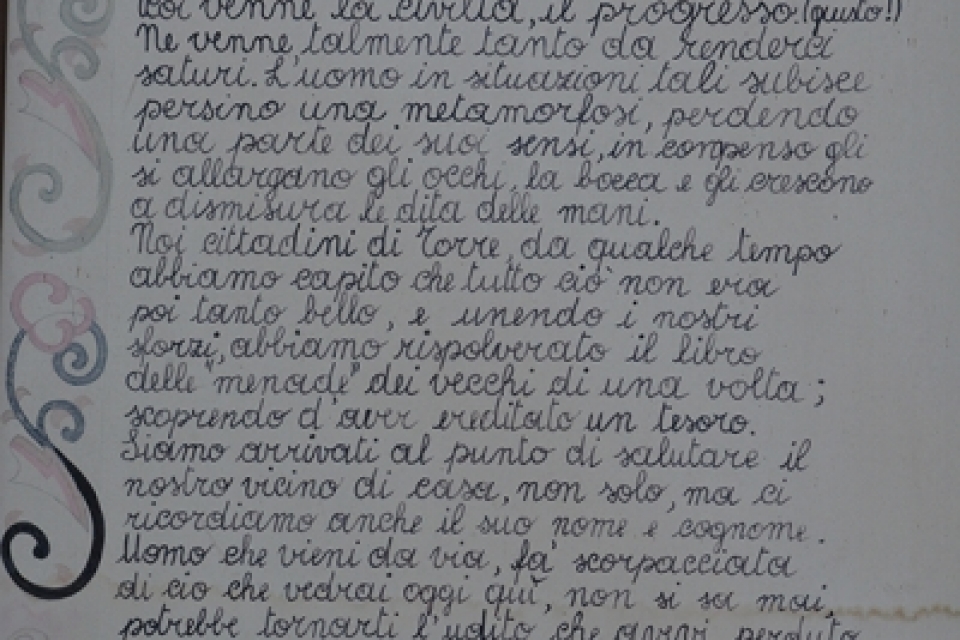 Poi venne la civiltà, il progresso.(giusto!)
Ne venne, talmente tanto da renderci
saturi. L'uomo in situazioni tali subisce
persino una metamorfosi, perdendo
una parte dei suoi sensi, in compenso gli
si allargano gli occhi, la bocca e gli crescono
a dismisura le dita delle mani.
Noi cittadini di Torre, da qualche tempo
abbiamo capito che tutto ciò non era
poi tanto bello, e unendo i nostri
sforzi, abbiamo rispolverato il libro
delle "menade" dei vecchi di una volta;
scoprendo d'aver ereditato un tesoro.
Siamo arrivati al punto di salutare il
nostro vicino di casa, non solo, ma ci
ricordiamo anche il suo nome e cognome.
Uomo che vieni da via, fa' scorpacciata
di cio che vedrai oggi quì, non si sa mai,
potrebbe tornarti l'udito che avrai perduto